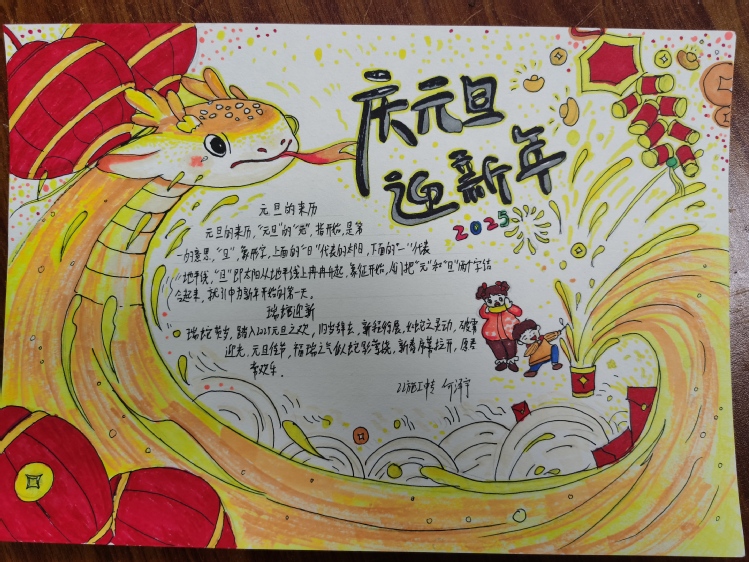 庆元旦
迎新年
2025
元旦的来历
元旦的来历，"元旦"的"元"，指开始，是第
一的意思，"旦"，象形字，上面的"日"代表的太阳，下面的"一"代表
地平线，"旦"即太阳从地平线上冉冉升起，象征开始，人们把"元"和"旦"两个字结
合起来，就引申为新年开始的第一天。
瑞蛇迎新
瑞蛇贺岁，踏入2025元旦之欢，旧岁辞去，新程舒展，如蛇之灵动，破雾
迎光，元旦佳节，福瑞之气似蛇影萦绕，新春序幕拉开，愿君
常欢乐。